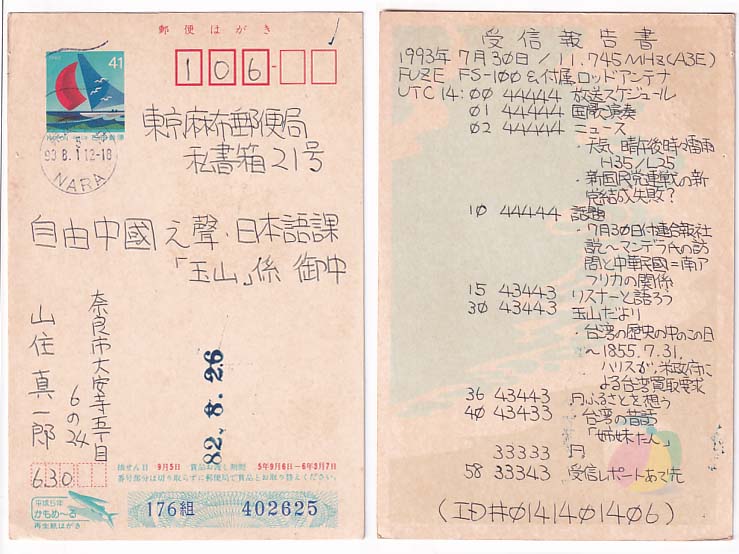 郵便はがき
41
93.8.1 12-18
NARA
106-
東京麻布郵便局
私書箱21号
自由中國之聲・日本語課
「玉山」係 御中
奈良市大安寺五丁目
6の24
山住真一郎
82.8.26
630
抽せん日 9月5日 賞品お渡し期間 5年9月6日-6年3月7日
番号部分は切り取らずに郵便局で賞品とお取り替えください。
平成5年
かもめ〜る
再生紙はがき
176組 402625
受信報告書
1993年7月30日/11.745MHz(A3E)
FUZE FS-100&付属ロッドアンテナ
UTC14:00 44444 放送スケジュール
01 44444 国歌演奏
02 44444 ニュース
・天気 晴午後時々雷雨
H35/L25
・新国民党連戦の新
党結成失敗?
10 44444 話題
・7月30日付連合報社
説〜マンデラ氏の訪
問と中華民國=南ア
フリカの関係
15 43443 リスナーと語ろう
30 43443 玉山だより
・台湾の歴史の中のこの日
〜1855.7.31.
ハリスが、米政府に
よる台湾買取要求
36 43443 円ふるさとを想う
40 43433 ・台湾の昔話
「姉妹たん」
33333 円
58 33343 受信レポートあて先
(ID#0141401406)